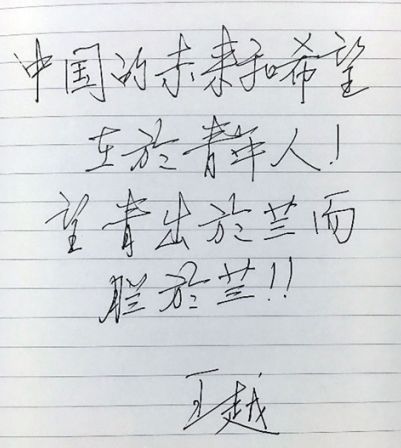 中国的未来和希望
在於青年人！
望青出於兰而
胜於兰！！
王越